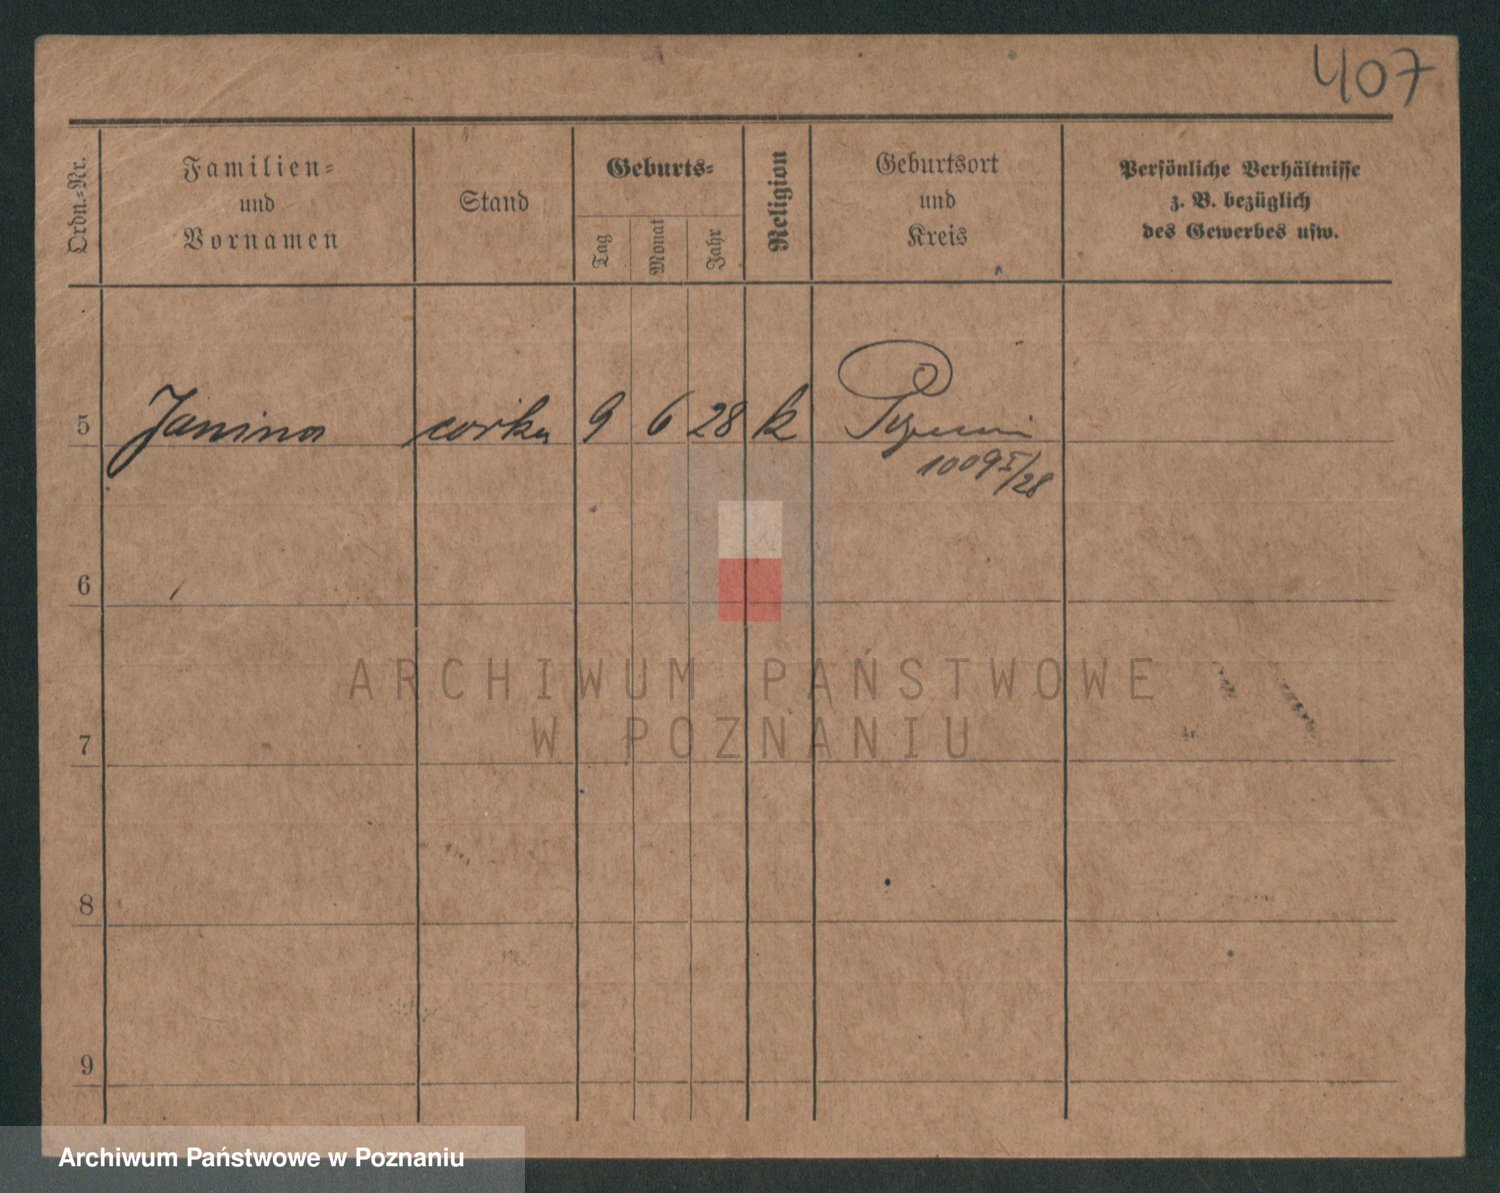 407
Ordn.-Nr.
Familien-
und
Vornamen
Stand
Geburts-
Tag
Monat
Jahr
Religion
Geburtsort
und
Kreis
Persönliche Verhältnisse
z. B. bezüglich
des Gewerbes usw.
5 Janina córka 9 6 28 k
1009 I/28
6
7
8
9
ARCHIWUM PAŃSTWOWE
W POZNANIU
Archiwum Państwowe w Poznaniu